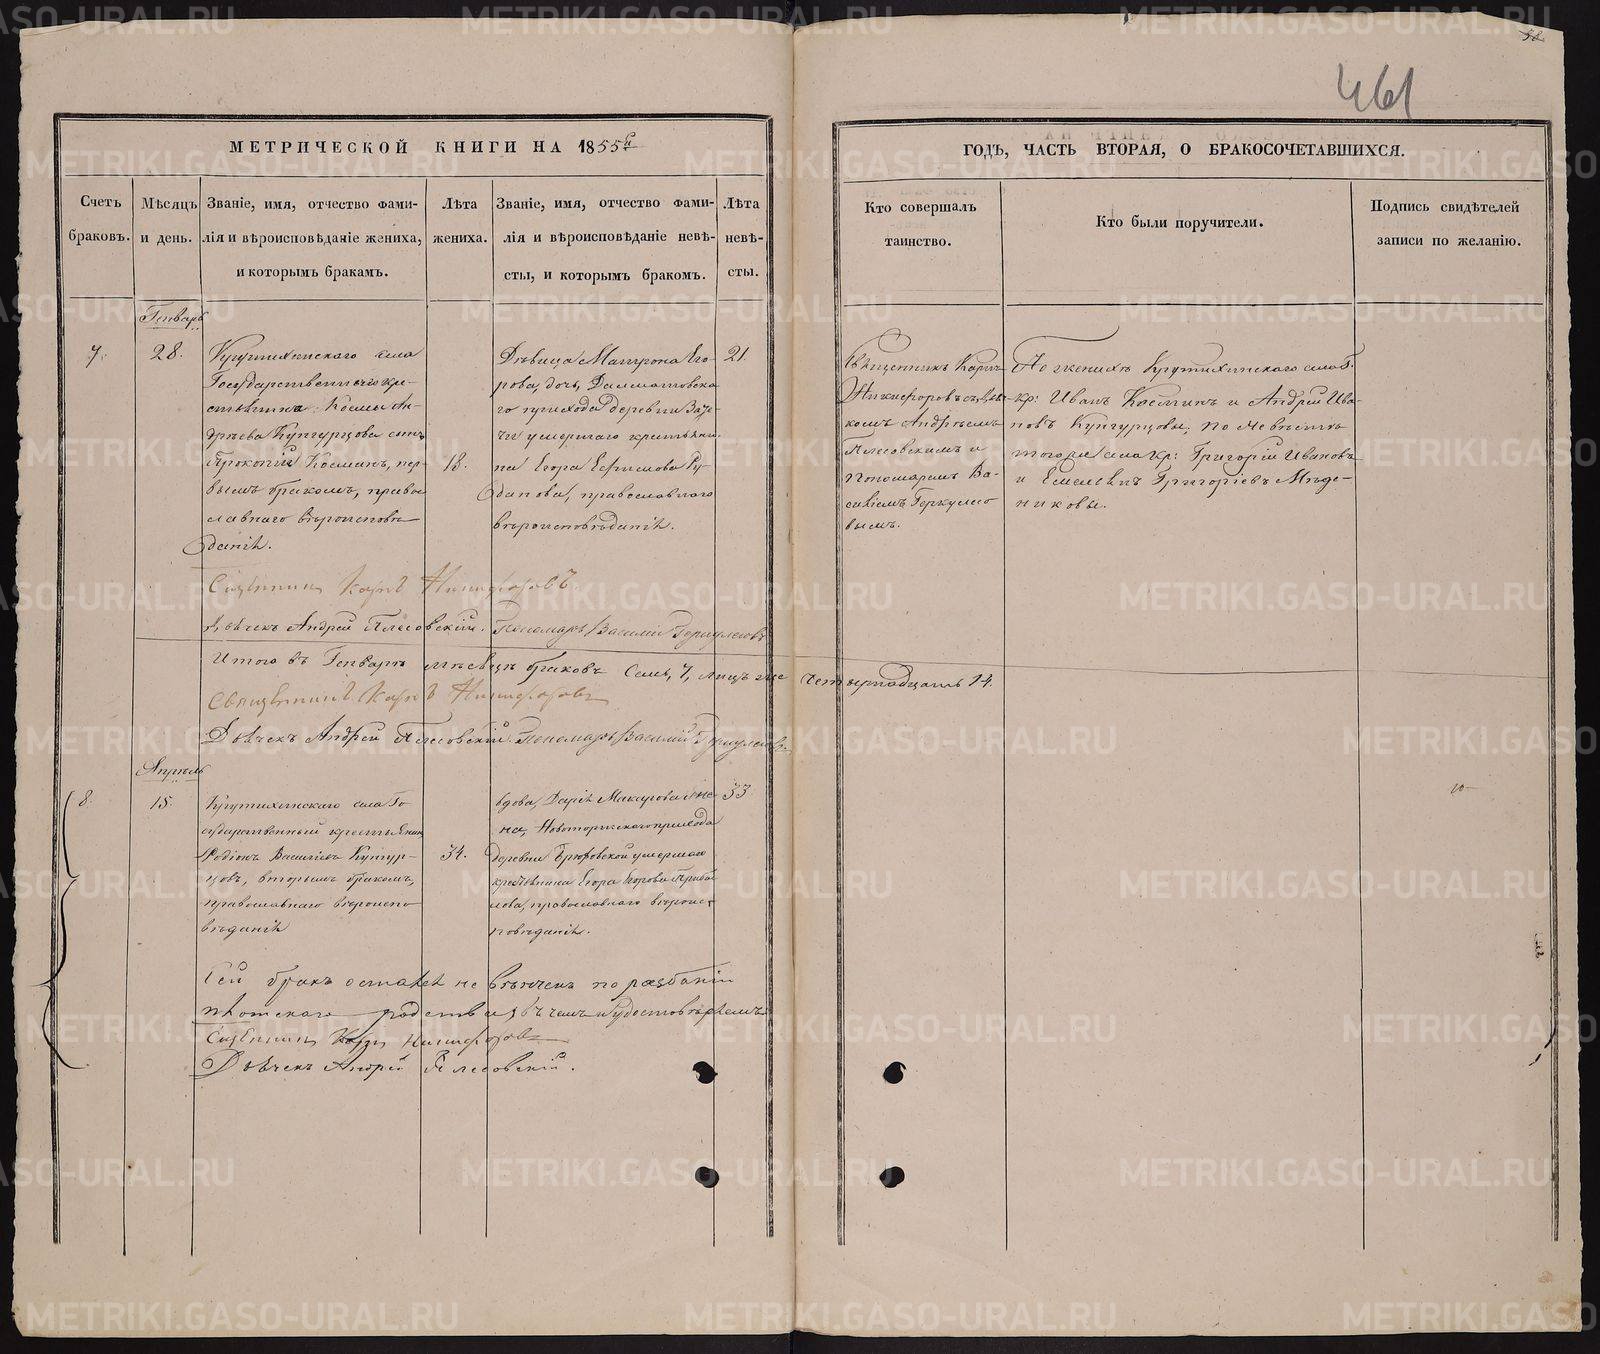 50
461
МЕТРИЧЕСКОЙ КНИГИ НА 1855й
ГОДЪ, ЧАСТЬ ВТОРАЯ, О БРАКОСОЧЕТАВШИХСЯ.
Счетъ
браковъ.
Мѣсяцъ
и день.
Званіе, имя, отчество фами-
лія и вѣроисповѣданіе жениха,
и которымъ бракамъ.
Лѣта
жениха.
Званіе, имя, отчество фами-
лія и вѣроисповѣданіе невѣ-
сты, и которымъ бракомъ.
Лѣта
невѣ-
сты.
Кто совершалъ
таинство.
Кто были поручители.
Подпись свидѣтелей
записи по желанію.
Генварь
7.
28.
Крутихинскаго села
Государственнаго кре-
стьянина Космы Ан-
дрѣева Кунгурцова сынъ
Прокопій Косминъ, пер-
вымъ бракомъ, право-
славнаго вѣроисповѣ-
данія.
18.
Дѣвица Матрона Его-
рова, дочь, Далматовска-
го прихода деревни
умершаго крестьяни-
на Егора Ефимова
православнаго
вѣроисповѣданія.
21.
Священникъ Карпъ
Никифоровъ съ Дьяч-
комъ Андреемъ
Плесовскимъ и
Пономаремъ Ва-
силіемъ Геркулесо
вымъ.
По женихѣ Крутихинскаго села Г.
кр: Иванъ Косминъ и Андрей Ива-
новъ Кунгурцовы, по невѣстѣ
тогоже села кр: Григорій Ивановъ
и Емельянъ Григорьевъ Мѣде-
никовы.
Священникъ Карпъ Никифоровъ
Дьячекъ Андрей Плесовскій. Пономарь Василій Геркулесовъ
Итого въ Генварѣ мѣсяцѣ браковъ Семь, 7, лицъ же четырнадцать 14.
Священникъ Карпъ Никифоровъ
Дьячекъ Андрей Плесовскій. Пономарь Василій Геркулесовъ.
Апрѣль
8.
15.
Крутихинскаго села Го
сударственный крестьянин
Родіонъ Васильевъ Кунгур-
цовъ, вторымъ бракомъ,
православнаго вѣроиспо-
вѣданія
34.
вдова, Дарья Макарова
Новоторжскаго прихода
деревни умершаго
крестьянина Егора Егорова
православнаго вѣроис-
повѣданія.
33
Сей бракъ остался не вѣнчанъ по
плотскаго родства, въ чемъ и удостовѣряемъ
Священникъ Карпъ Никифоровъ
Дьячекъ Андрей Плесовскій.
METRIKI.GASO-URAL.RU